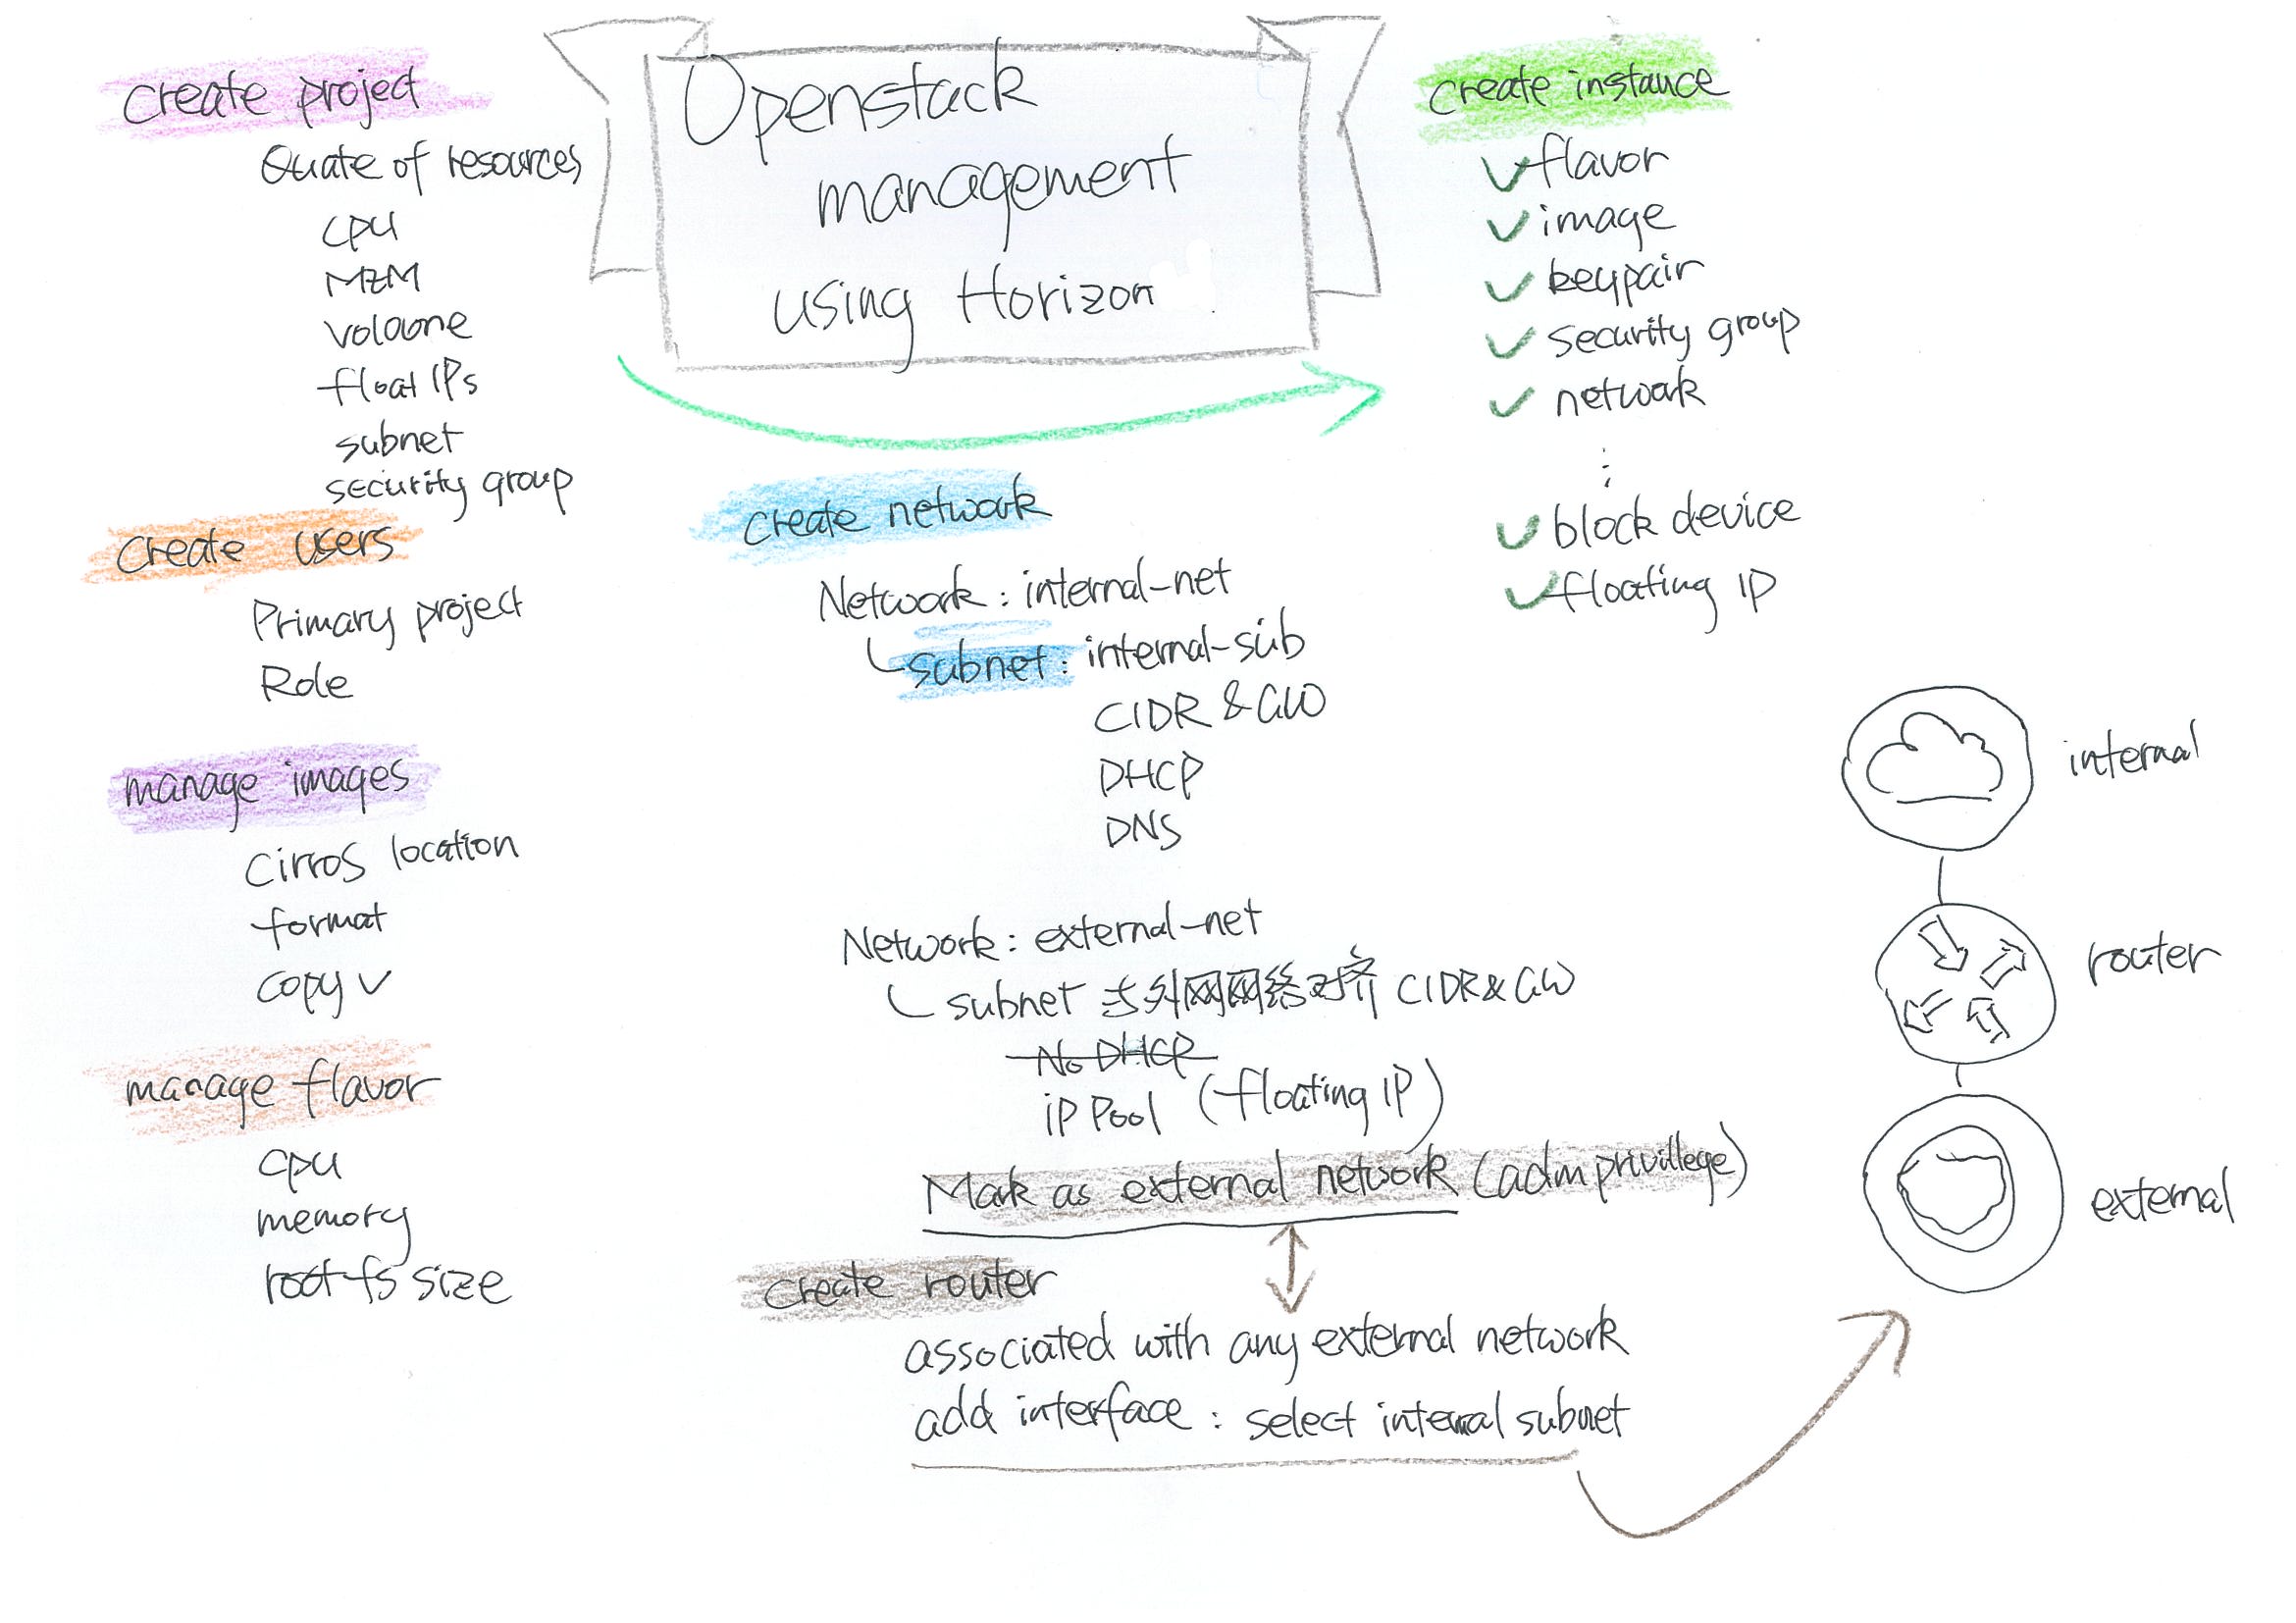 Openstack
management
using Horizon
create project
Quate of resources
CPU
MEM
volume
float IPs
subnet
security group
create users
Primary project
Role
manage images
cirros location
format
copy √
manage flavor
cpu
memory
root fs size
create network
Network: internal-net
subnet: internal-sub
CIDR & GW
DHCP
DNS
Network: external-net
subnet 与外网网络对齐 CIDR & GW
No DHCP
IP Pool (floating IP)
Mark as external network (adm privillege)
create router
associated with any external network
add interface: select internal subnet
create instance
√ flavor
√ image
√ keypair
√ security group
√ network
⋮
√ block device
√ floating IP
internal
router
external